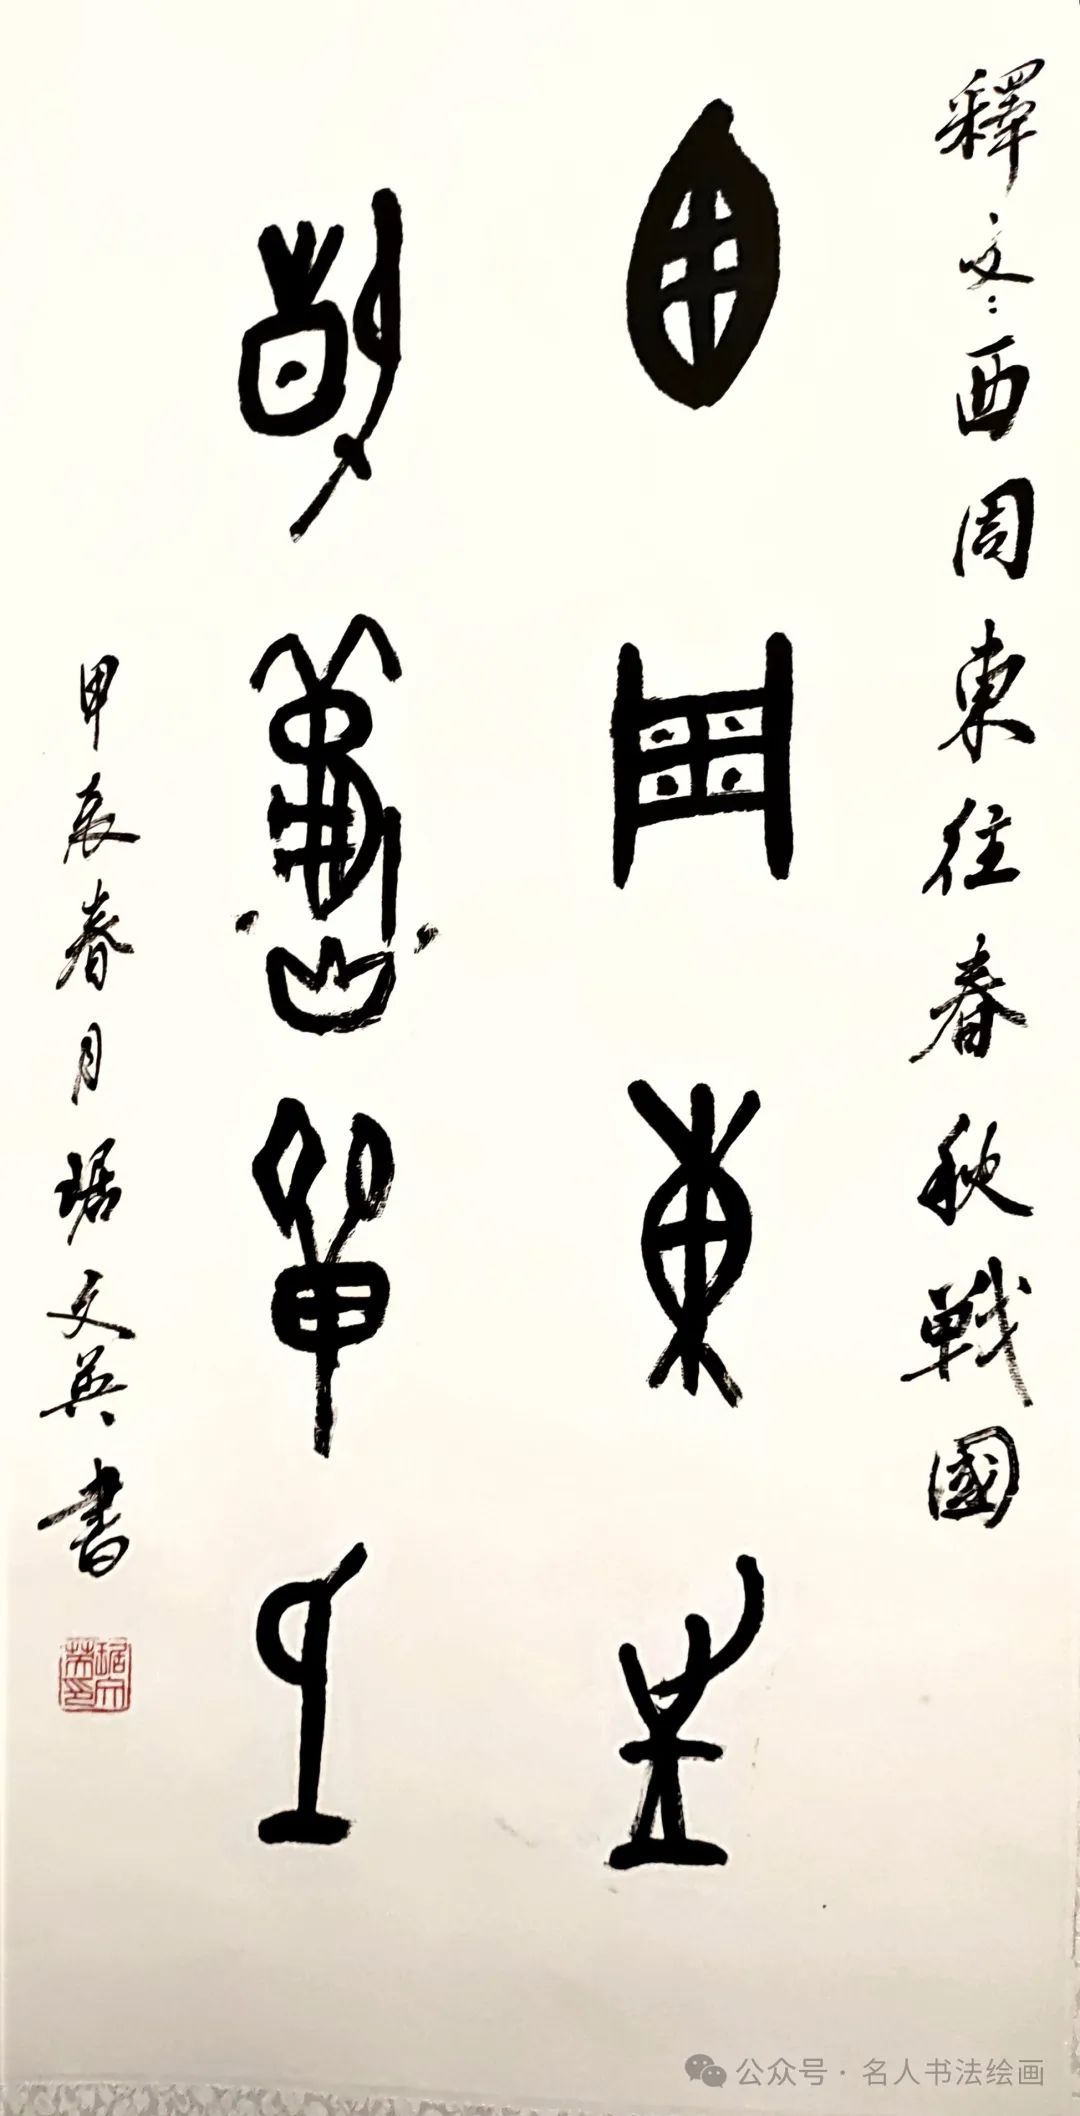 釋文：西周東往春秋戰國
西周東往
春秋戰國
甲辰春月琚文英書
公众号·名人书法绘画